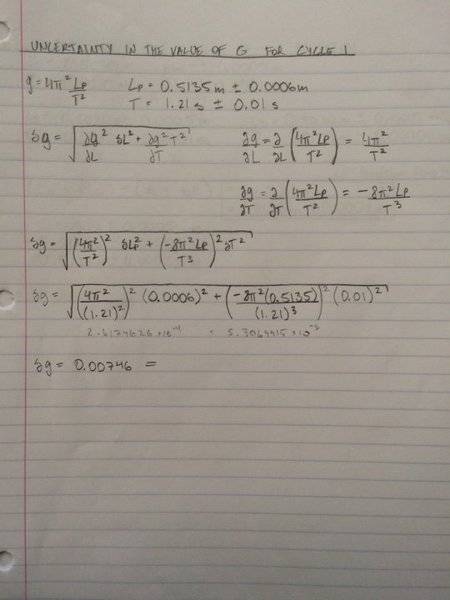 UNCERTAINTY IN THE VALUE OF G FOR CYCLE 1
g = 4π² Lp / T²   Lp = 0.5135 m ± 0.0006 m
T = 1.21 s ± 0.01 s
δg = √(∂g²/∂L δL² + ∂g²/∂T T²)   ∂g/∂L = ∂/∂L (4π²Lp / T²) = 4π² / T²
∂g/∂T = ∂/∂T (4π²Lp / T²) = -8π²Lp / T³
δg = √((4π² / T²)² δLp² + (-8π²Lp / T³)² δT²)
δg = √((4π² / (1.21)²)² (0.0006)² + (-8π²(0.5135) / (1.21)³)² (0.01)²)
δg = 0.00746 =